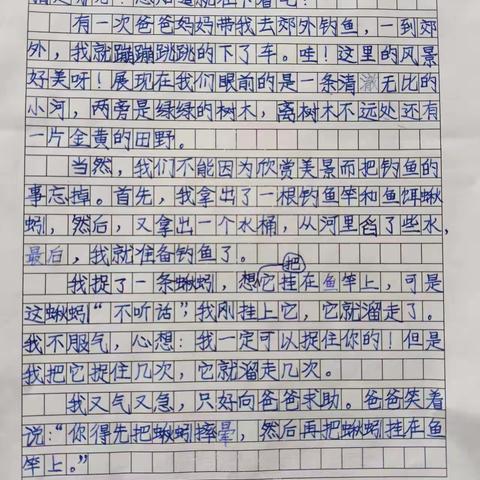 有一次爸爸妈妈带我去郊外钓鱼，一到郊
外，我就蹦蹦跳跳的下了车。哇！这里的风景
好美呀！展现在我们眼前的是一条清澈无比的
小河，两旁是绿绿的树木，离树木不远处还有
一片金黄的田野。
当然，我们不能因为欣赏美景而把钓鱼的
事忘掉。首先，我拿出了一根钓鱼竿和鱼饵蚯
蚓，然后，又拿出一个水桶，从河里舀了些水，
最后，我就准备钓鱼了。
我捉了一条蚯蚓，想把它挂在鱼竿上，可是
这蚯蚓“不听话”，我刚挂上它，它就溜走了。
我不服气，心想：我一定可以捉住你的！但是
我把它捉住几次，它就溜走几次。
我又气又急，只好向爸爸求助。爸爸笑着
说：“你得先把蚯蚓摔晕，然后再把蚯蚓挂在鱼
竿上。”